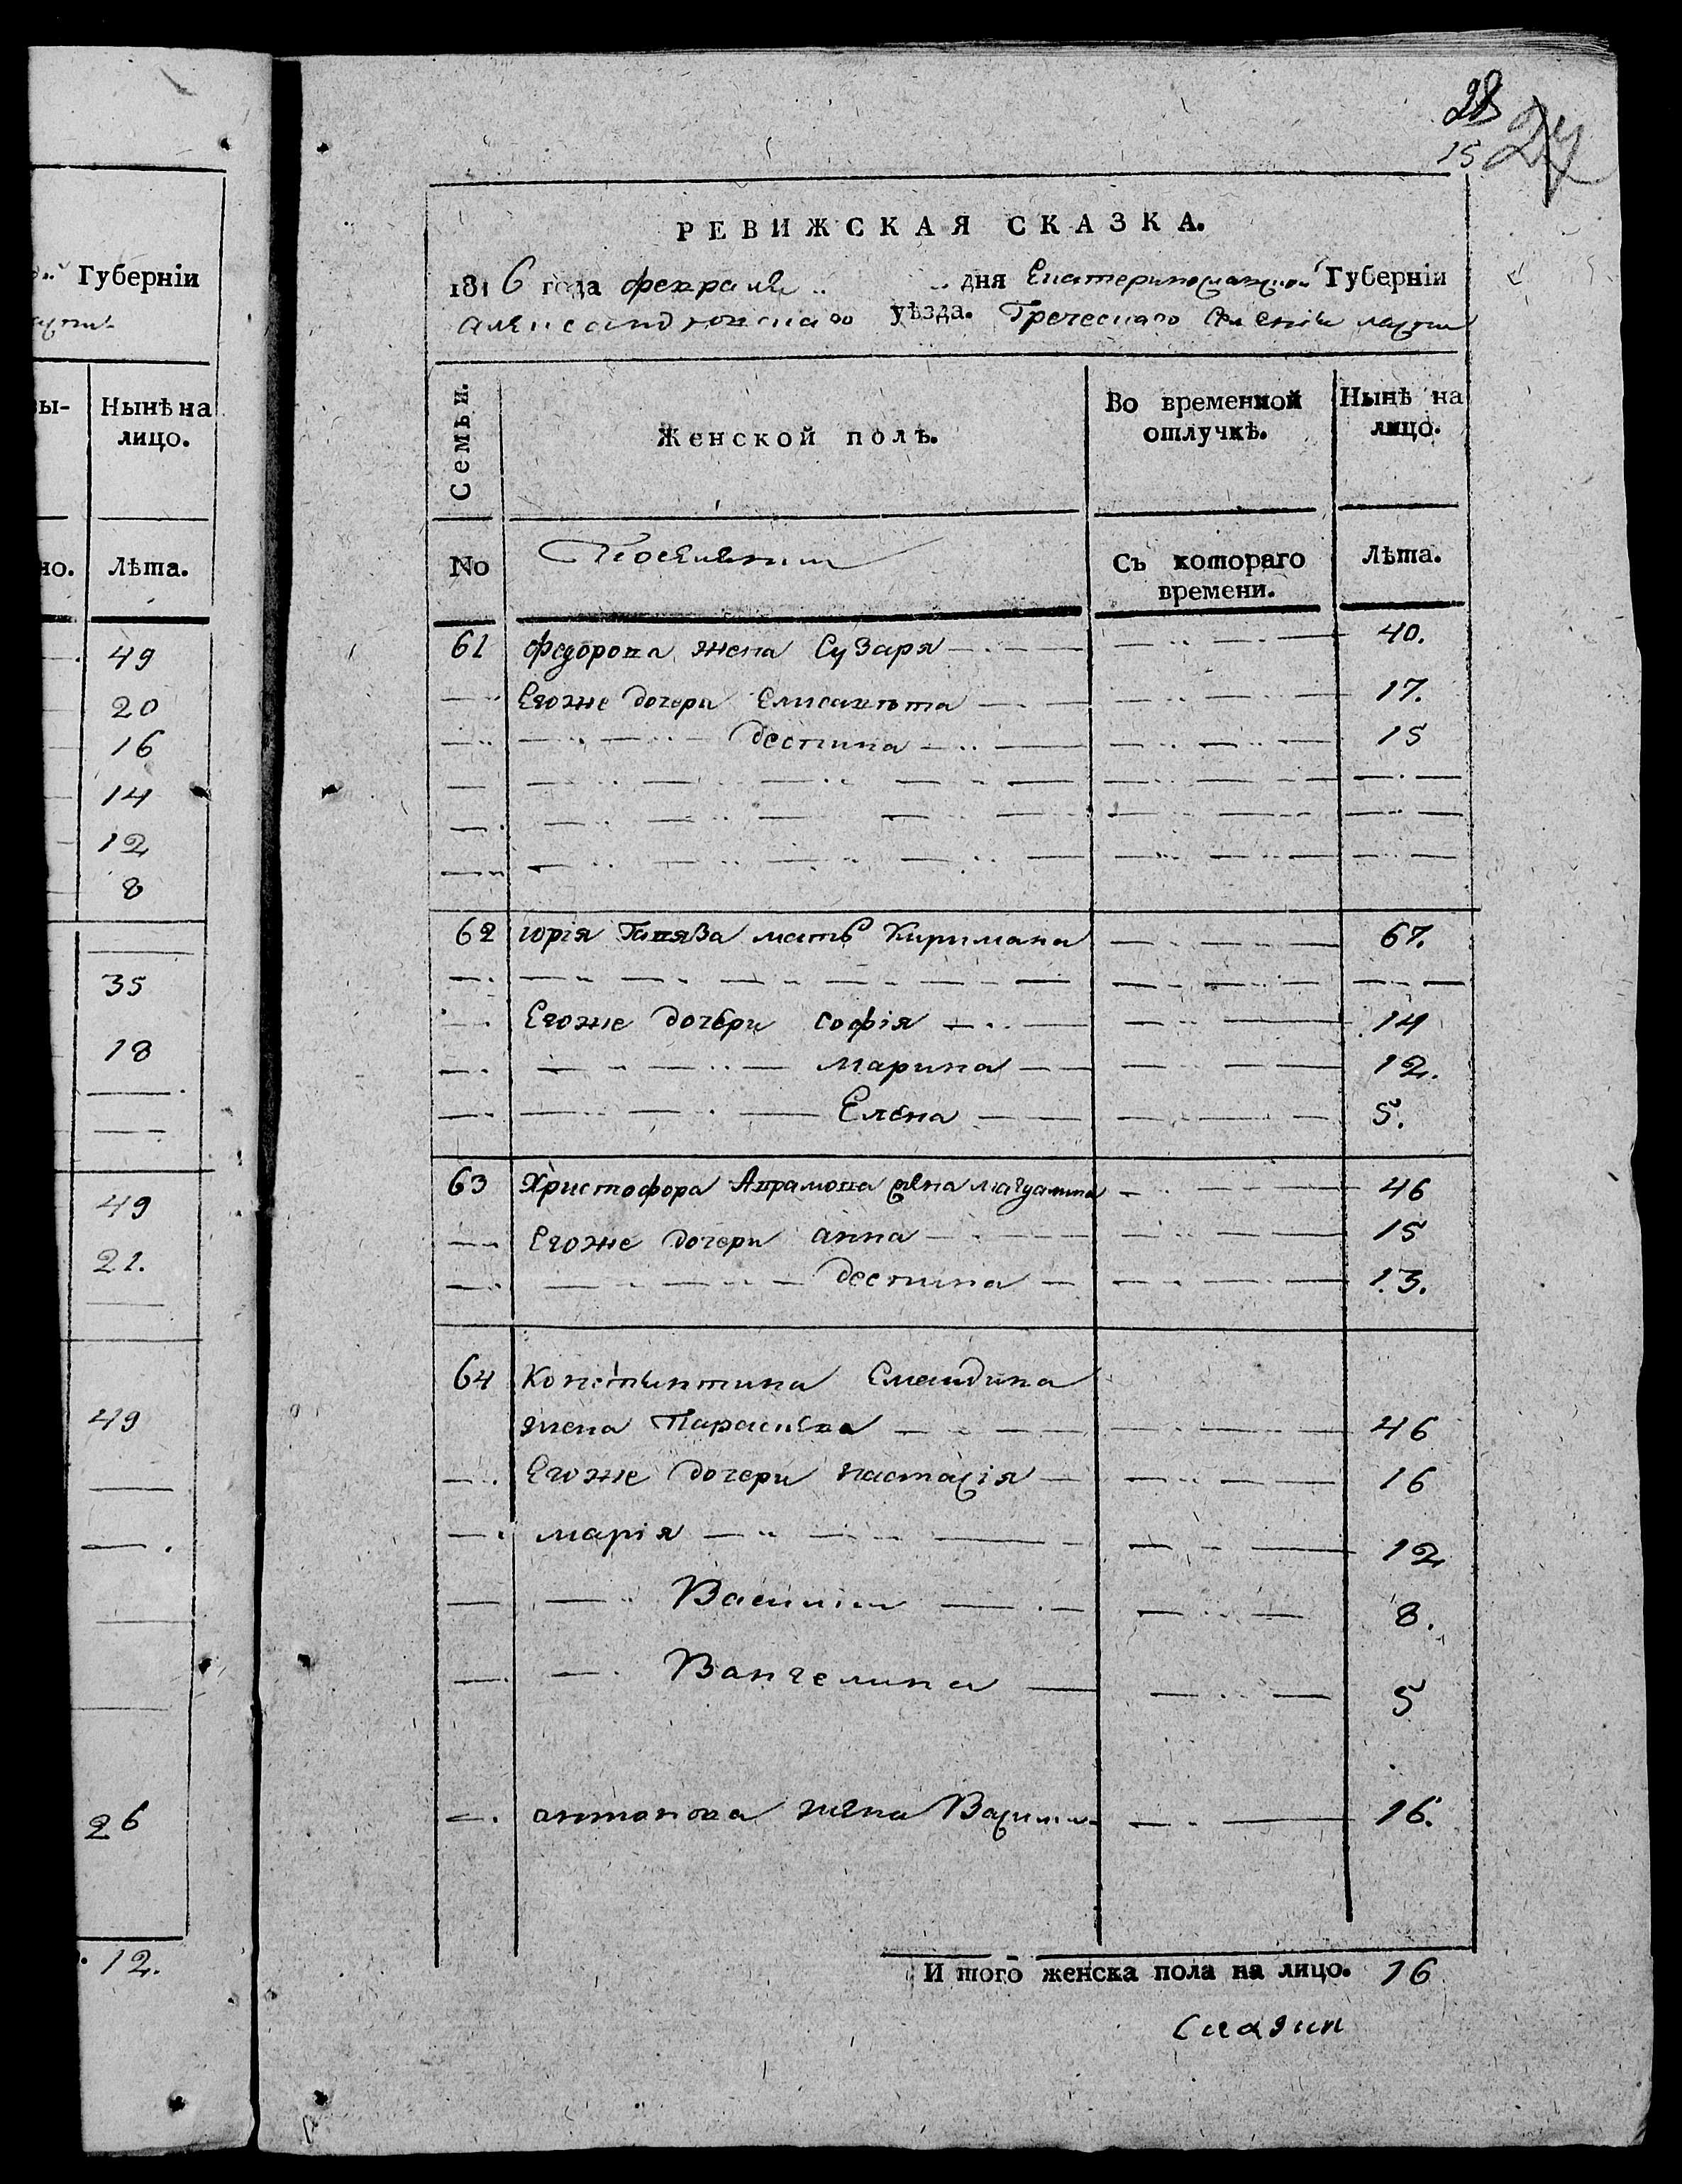 28
15 27
РЕВИЖСКАЯ СКАЗКА.
1816 года февраля .. .. дня Екатеринославской Губерніи
александровскаго уѣзда. Греческаго селенія
Семьи.
Женской полъ.
Во временной отлучкѣ.
Нынѣ на лицо.
No
Поселянки
Съ котораго времени.
Лѣта.
61 Федорова жена Сузаря 40.
Егоже дочери Елисавѣта 17.
деспина 15
62 юрія мать Киримана 67.
Егоже дочери софія 14
марина 12.
Елена 5.
63 Христофора Аврамова жена магдалина 46
Егоже дочери анна 15
деспина 13.
64 Константина
жена Параскева 46
Егоже дочери настасія 16
марія 12
Василиа 8.
Вангелина 5
антонова жена Василиа 16.
И того женска пола на лицо. 16
Губерніи
Нынѣ на
лицо.
Лѣта.
49
20
16
14
12
8
35
18
49
21.
49
26
12.